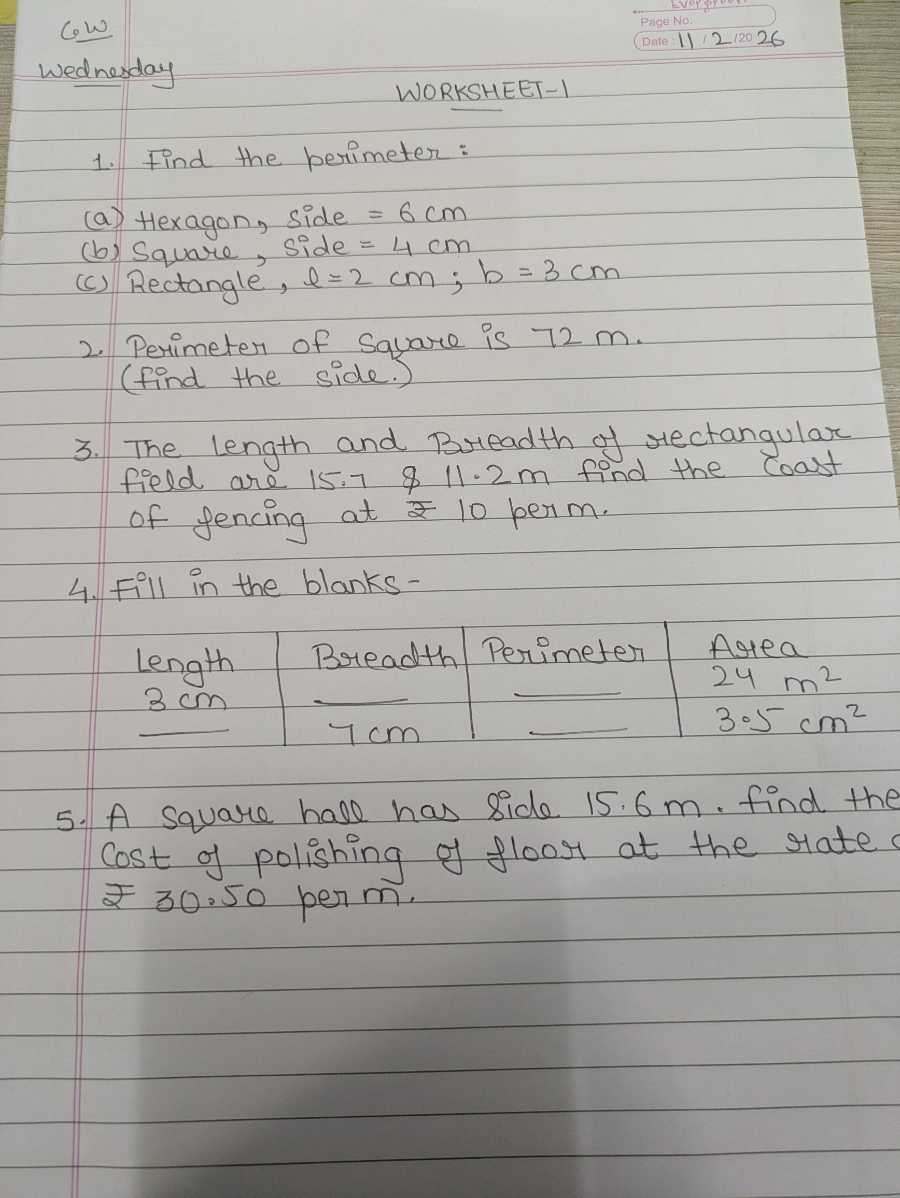 CW
Page No.
Date : 11 / 2 /20 26
Wednesday
WORKSHEET-1
1. Find the perimeter :
(a) Hexagon, side = 6 cm
(b) Square, side = 4 cm
(c) Rectangle, l = 2 cm ; b = 3 cm
2. Perimeter of square is 72 m.
(find the side.)
3. The length and Breadth of rectangular
field are 15.7 & 11.2 m find the coast
of fencing at ₹ 10 per m.
4. Fill in the blanks -
Length Breadth Perimeter Area
3 cm ____ ____ 24 m²
____ 7 cm ____ 3.5 cm²
5. A square hall has side 15.6 m. find the
cost of polishing of floor at the rate
₹ 30.50 per m.